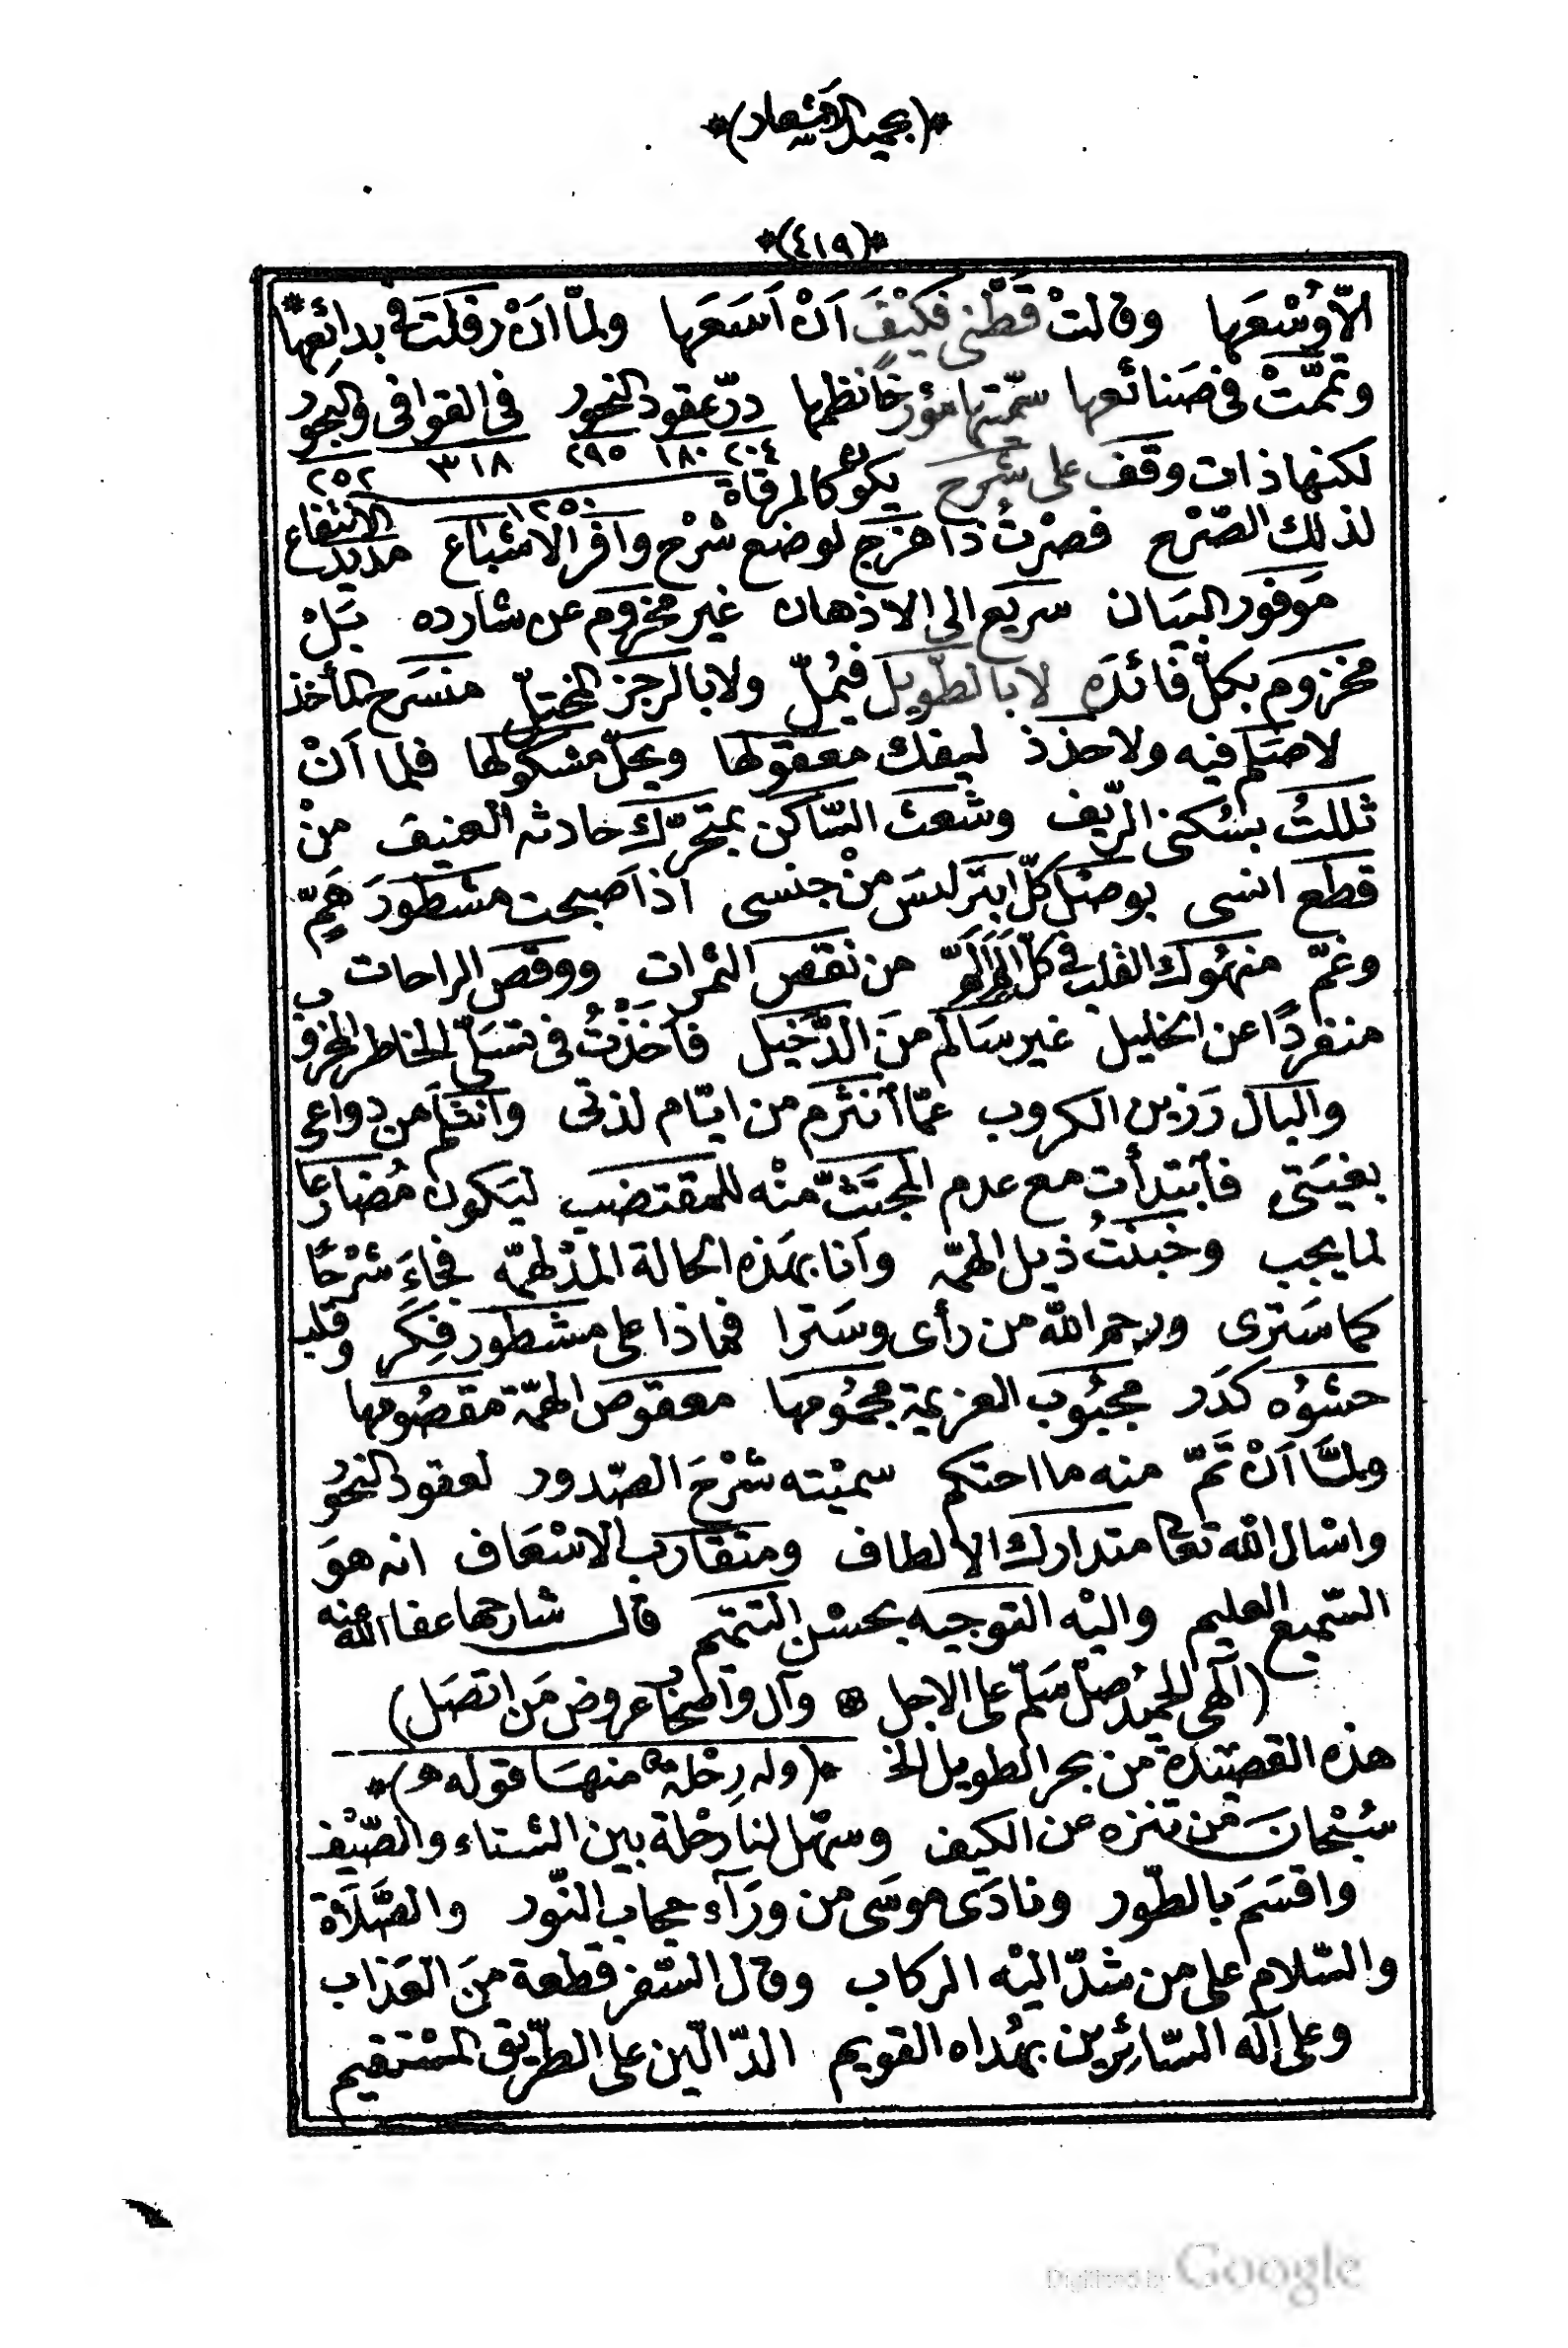 *(بحميد الاشعار)*
*(٤١٩)*
الّا وُسْعَها وقالتْ قَطْنى فكَيْفَ اَنْ اَسَعَها ولمّا انْ رفلَتْ فى بدائِعها*
وتمَّتْ فى صَنائعها سمّيتها مؤرخا نظمها درّ عقود النحور فى القوافى والبحور
٢٠٤ ١٨٠ ٢٩٥ ٣١٨ ٢٥٢
لكنها ذات وقف على شرح يكون كالمرقاة
١٢٥٠
لذلك الصّرْح فصِرْتُ ذا هزج لوضع شرْح وافر الاشباع مديد الانتفاع
مَوفور البيَان سريع الى الاذهان غير مخروم عن شارده بَلْ
مخزوم بكلّ فائدَه لا بالطّويل فيُملّ ولا بالرجز المختلّ منسَرح المأخذ
لا صَلم فيه ولا حذذ ليفك معقولها ويحلّ مشكولها فلما اَنْ
ثللتُ بسُكنى الرّيف وشعث السّاكن بمتحرّك حادثه العنيف منْ
قطع انسى بوصْل كلّ ابتَر ليسَ منْ جنسى اذ اَصبحت مشطورَ هَمٍّ
وغمّ منهُوك القلب فى كلّ المٍ المّ من نقص الثمرات ووقص الراحات
منفردًا عن الخليل غير سَالم منَ الدَّخيل فاَخَذْتُ فى تسَلّى الخاطر المخروب
والبال رَزين الكروب عمّا اَنثرم من ايّام لذتى وانثلم من دواعى
بغيتى فاَبتدأت مع عدم المجتَثّ منْه للمقتضب ليَكون مُضارعا
لما يجب وخبَنْتُ ذيل الهمّه وَانا بهَذه الحالة المدْلهمّه فجاءَ شرْحًا
كما سَترى ورحم الله من رأى وسَترا فماذا على مشطور فِكَر وقلب
حشوُه كدَر مجبُوب العزيمة مجمُومها معقوص الهمّة مقصُومها
ولمَّا اَنْ تَمّ منه ما احتكم سميْته شرْحَ الصّدور لعقود النحُور
واسْال الله تعا متدارك الالطاف ومتقارب الاسْعَاف انه هوَ
السّميع العليم واليْه التوجيه بحسْن التتميم قال شارحها عفا الله عنه
(آلهى لك الحمْد صلّ سَلّم على الاجل ۞ وآل واصحاب عروض مَن اتصَل)
هذه القصيْدة من بحر الطويل الخ *(وله رِحْلة منهَا قوله)*
سُبْحانَ من تنزه عن الكيف وسهّل لنا رحْلة بين الشتاء والصّيْف
واقسَمَ بالطّور ونادَى موسَى من ورَآء حجاب النّور والصَّلَاة
والسّلام على من شدّ اليْه الركاب وقال السّفر قطعة منَ العَذاب
وعلى آله السّائِرين بهُداه القويم الدّالّين على الطّريق المسْتقيم
Digitized by Google